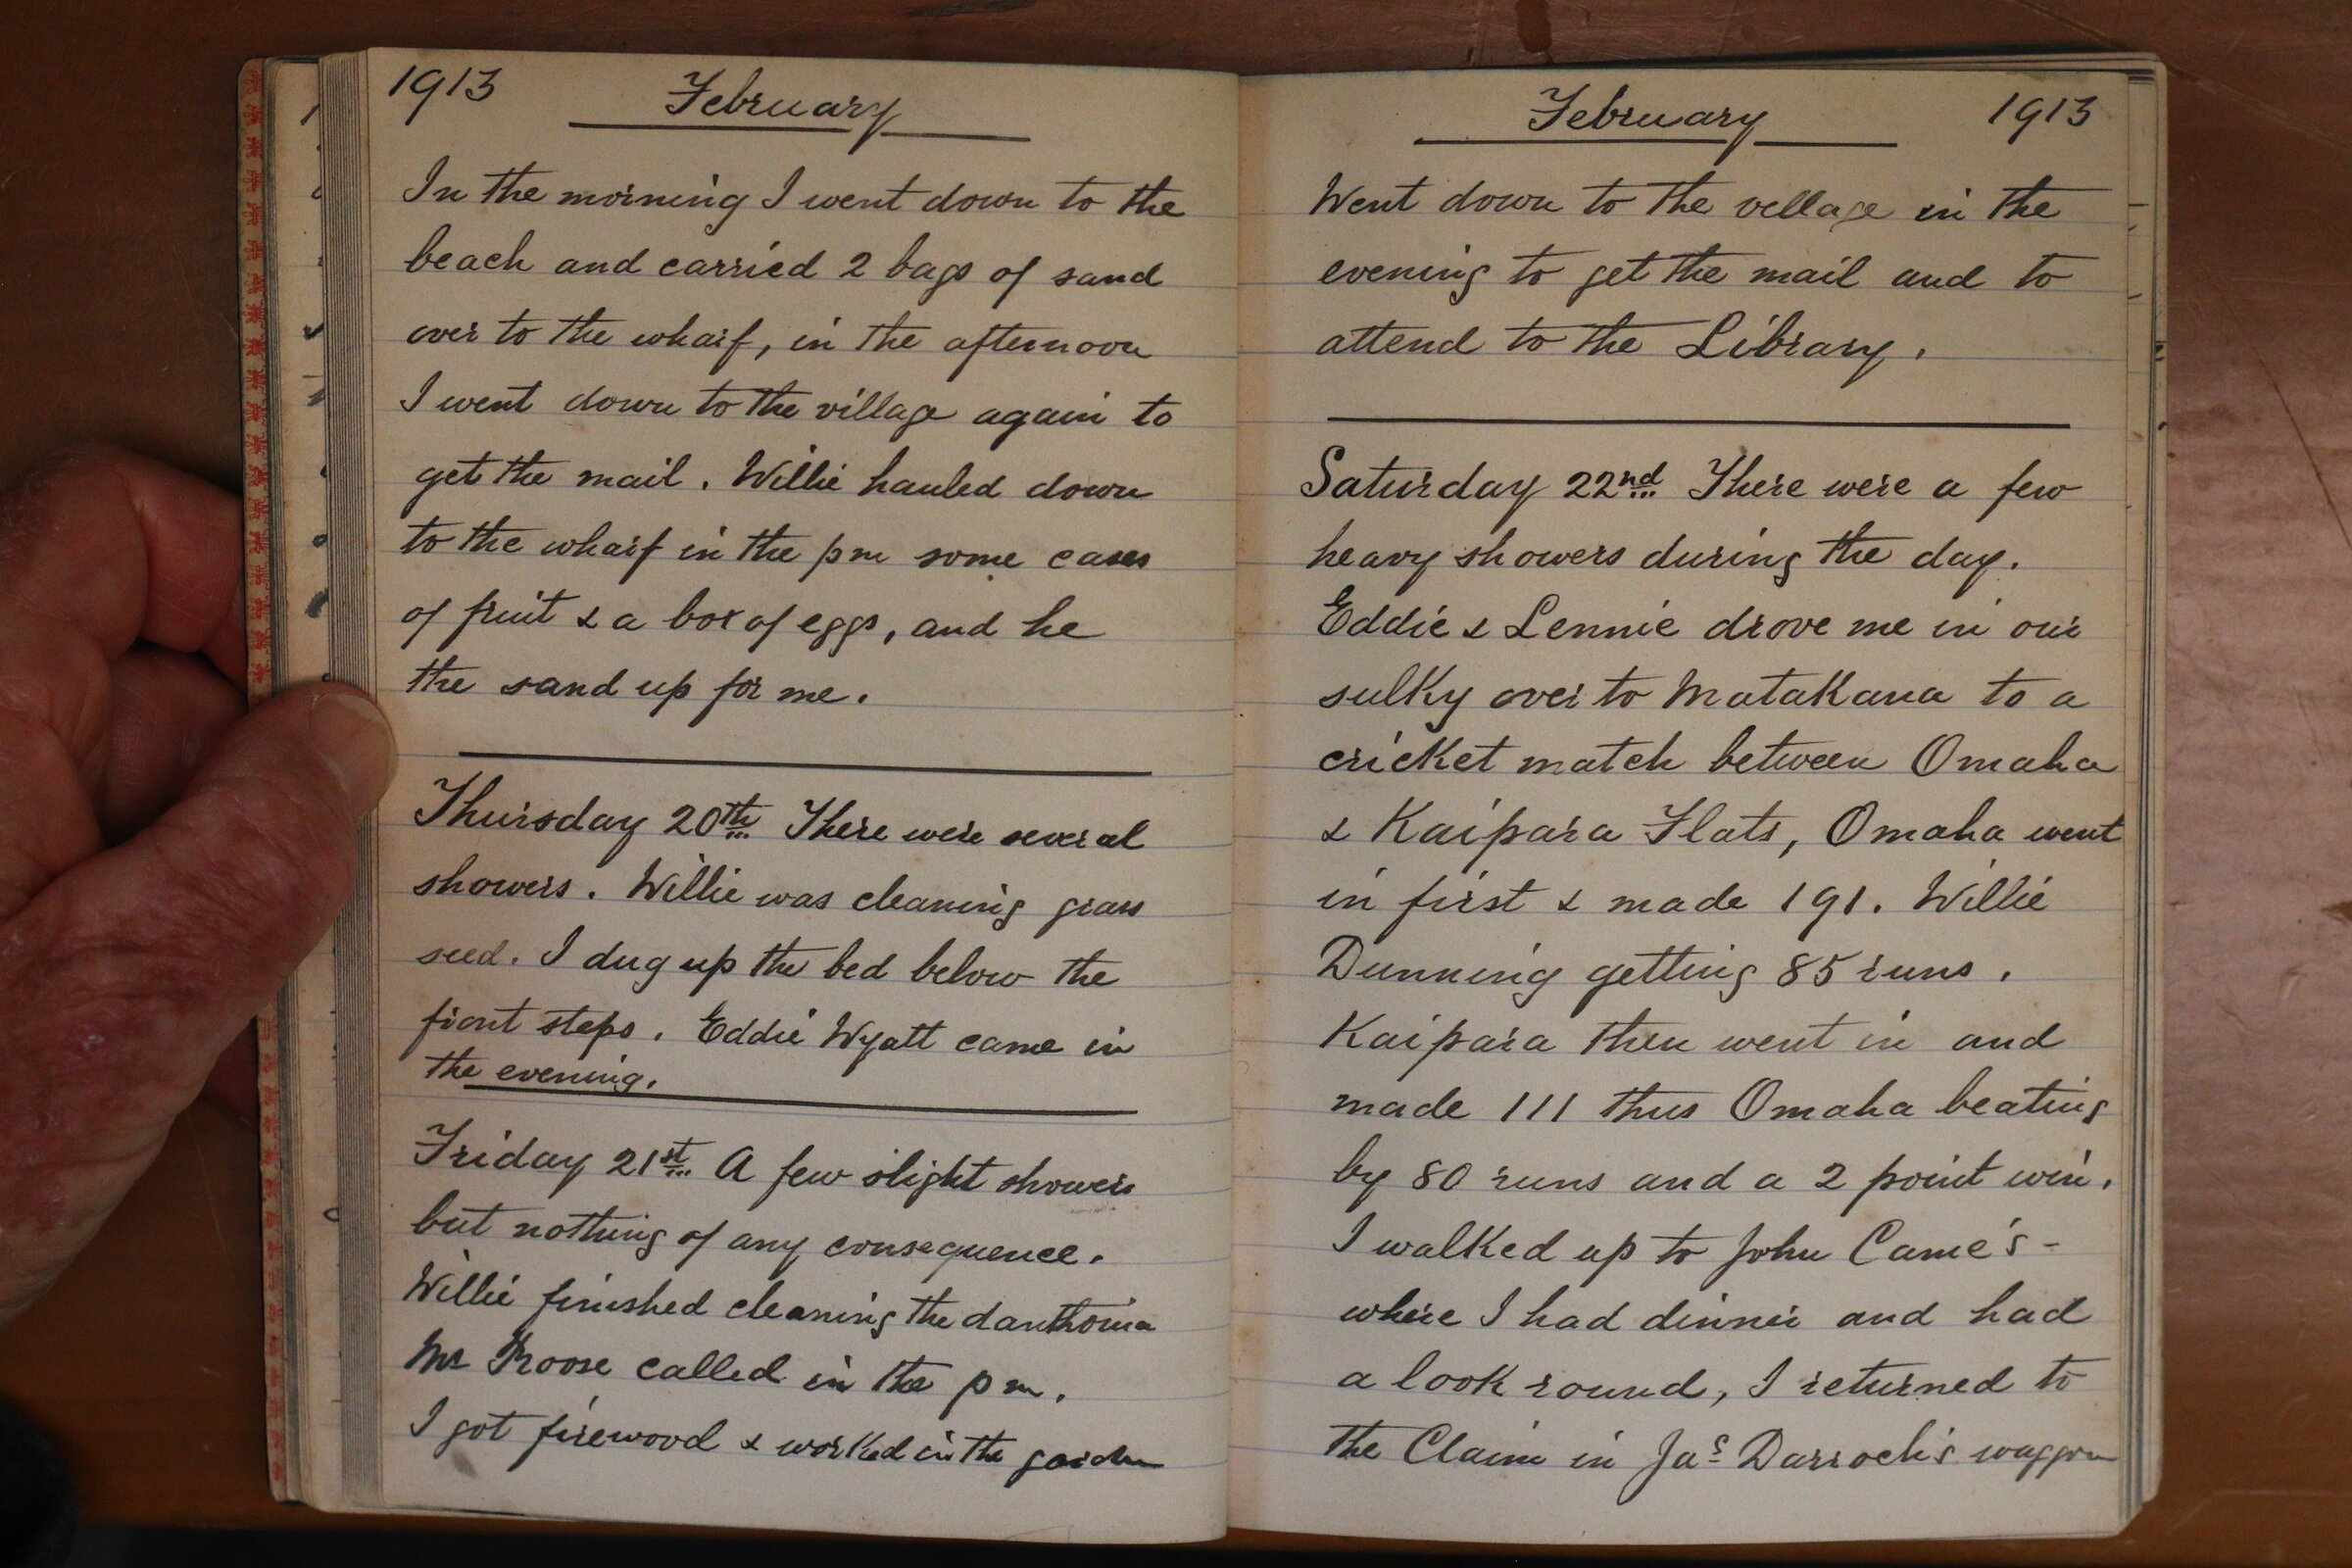 1913 February
In the morning I went down to the
beach and carried 2 bags of sand
over to the wharf, in the afternoon
I went down to the village again to
get the mail. Willie hauled down
to the wharf in the pm some cases
of fruit & a box of eggs, and he
the sand up for me.
Thursday 20th There were several
showers. Willie was cleaning grass
seed. I dug up the bed below the
front steps. Eddie Wyatt came in
the evening.
Friday 21st A few slight showers
but nothing of any consequence.
Willie finished cleaning the danthonia
Mr Roose called in the pm.
I got firewood & worked in the garden
February 1913
Went down to the village in the
evening to get the mail and to
attend to the Library.
Saturday 22nd There were a few
heavy showers during the day.
Eddie & Lennie drove me in our
sulky over to Matakana to a
cricket match between Omaha
& Kaipara Flats, Omaha went
in first & made 191. Willie
Dunning getting 85 runs.
Kaipara then went in and
made 111 thus Omaha beating
by 80 runs and a 2 point win.
I walked up to John Came's-
where I had dinner and had
a look round, I returned to
the Claim in Jas Darroch's waggon